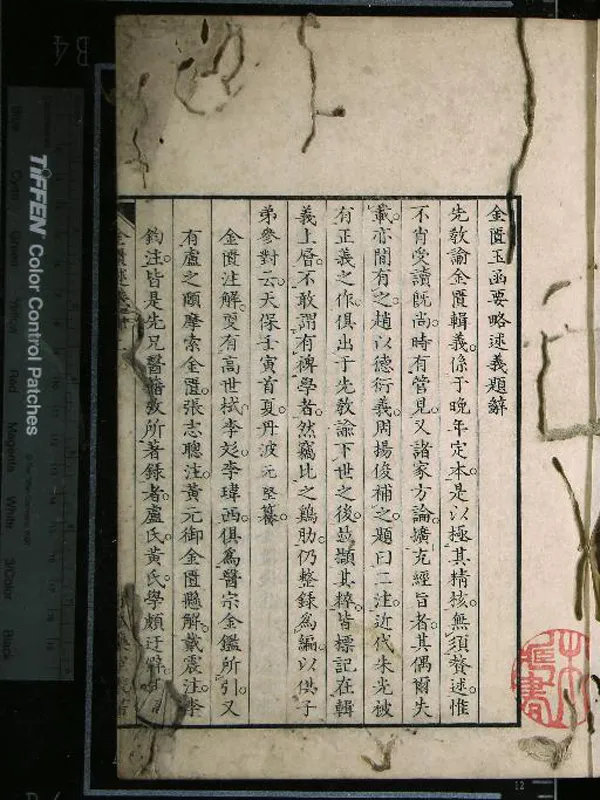 金匱玉函要略述義題辭
先教諭金匱輯義係于晚年定本是以極其精核無須贅述惟
不肖受讀既尚時有管見又諸家方論擴充經旨者其偶爾失
載亦間有之趙以德衍義周揚俊補之題曰二注近代朱光被
有正義之作俱出于先教諭下世之後並擷其粹皆標記在輯
義上層不敢謂有裨學者然竊比之鷄肋仍整錄為編以供子
弟參對云天保壬寅首夏丹波元堅纂
金匱注解更有高世栻李彣李瑋西俱為醫宗金鑑所引又
有盧之頤摩索金匱張志聰注黃元御金匱懸解戴震注李
鈞注皆是先兄醫籍攷所著錄者盧氏黃氏學頗迂僻
TIFFEN Color Control Patches
Blue
Cyan
Green
Yellow
Red
Magenta
White
3/Color
Black
B4
12